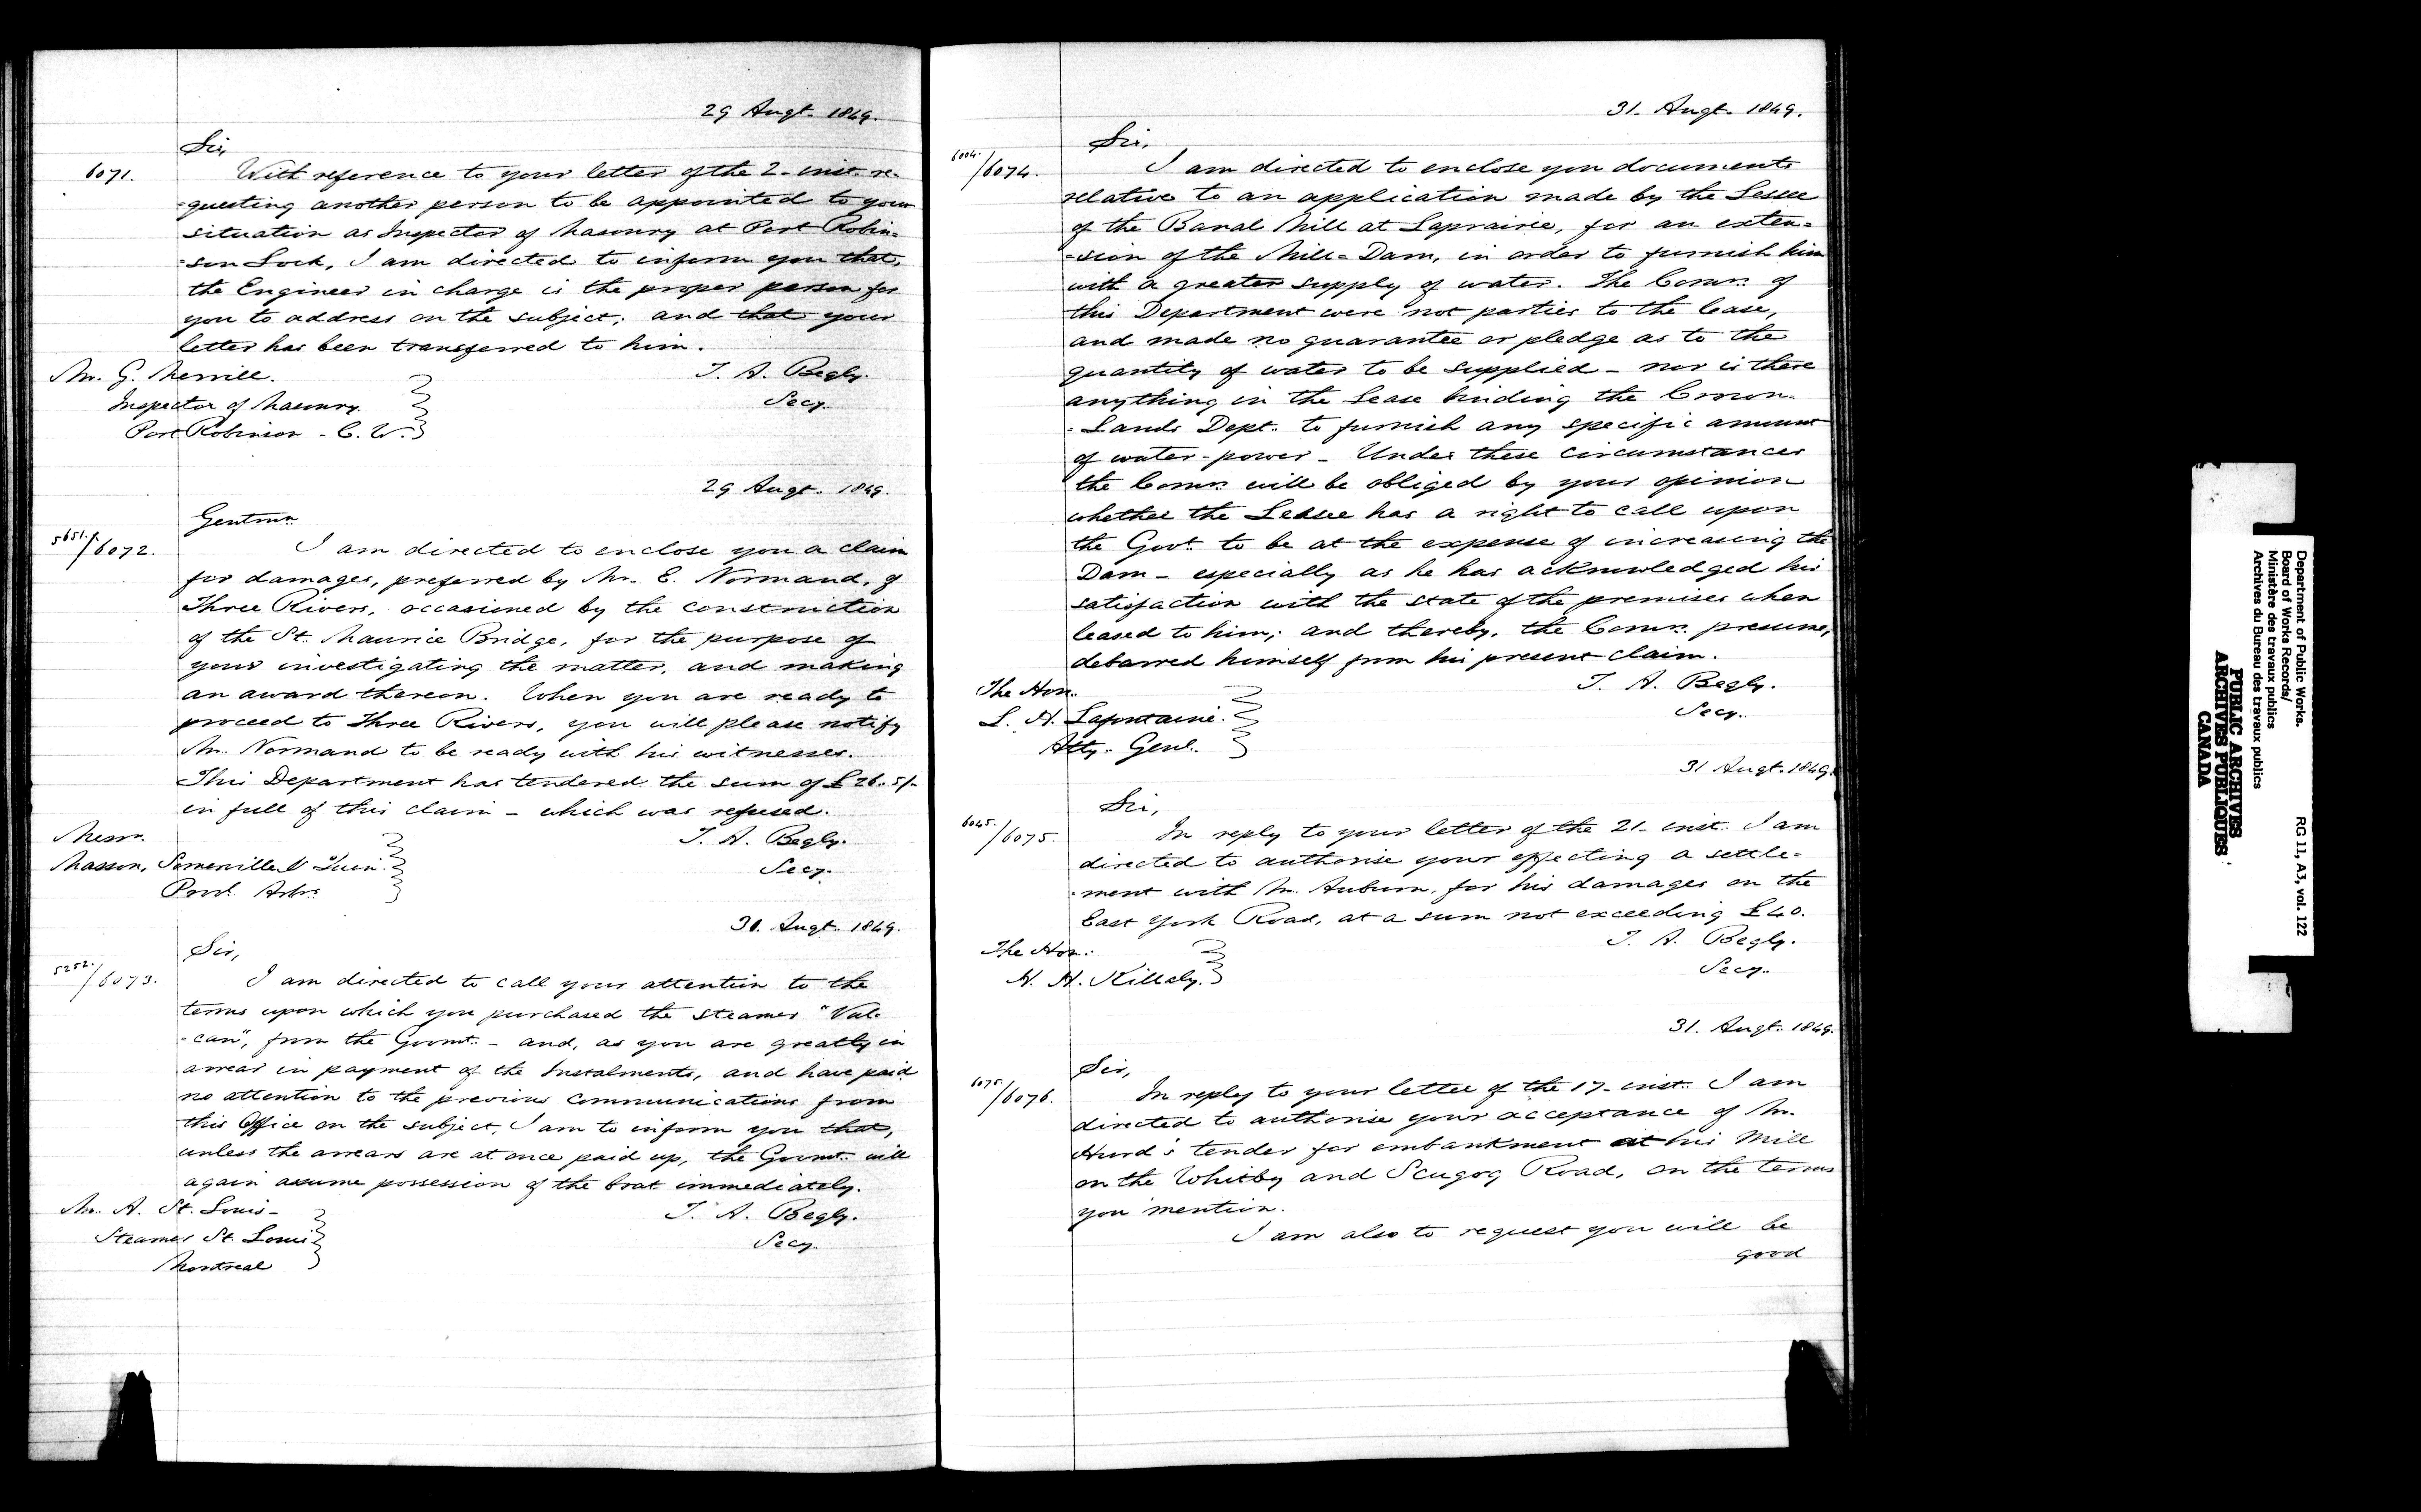 29 Augt. 1849.
Sir,
6071.
With reference to your letter of the 2. inst. re-
=questing another person to be appointed to your
situation as Inspector of Masonry at Port Robin=
=son Lock, I am directed to inform you that,
the Engineer in charge is the proper person for
you to address on the subject; and that your
letter has been transferred to him.
Mr. G. Merrill.
T. A. Begly.
Inspector of Masonry.
Secy.
Port Robinson - C. W.
29 Augt. 1849.
Gentmn
5651./6072.
I am directed to enclose you a claim
for damages, preferred by Mr. E. Normand, of
Three Rivers, occasioned by the construction
of the St. Maurice Bridge, for the purpose of
your investigating the matter, and making
an award thereon. When you are ready to
proceed to Three Rivers, you will please notify
Mr. Normand to be ready with his witnesses.
This Department has tendered the sum of £26.5/-
in full of this claim - which was refused.
Messrs.
T. A. Begly.
Masson, Somerville &
Secy.
Provl. Arbs.
30. Augt. 1849.
Sir,
5252./6073.
I am directed to call your attention to the
terms upon which you purchased the steamer "Vul-
=can", from the Govmt. - and, as you are greatly in
arrear in payment of the Instalments, and have paid
no attention to the previous communications from
this Office on the subject, I am to inform you that,
unless the arrears are at once paid up, the Govmt. will
again assume possession of the boat immediately.
Mr. A. St. Louis -
T. A. Begly.
Steamer St. Louis
Secy.
Montreal
31. Augt. 1849.
Sir,
6004./6074.
I am directed to enclose you documents
relative to an application made by the Lessee
of the Banal Mill at Laprairie, for an exten=
=sion of the Mill=Dam, in order to furnish him
with a greater supply of water. The Comrs. of
this Department were not parties to the lease,
and made no guarantee or pledge as to the
quantity of water to be supplied - nor is there
anything in the Lease binding the Crown-
=Lands Dept. to furnish any specific amount
of water-power - Under these circumstances
the Comrs. will be obliged by your opinion
whether the Lessee has a right to call upon
the Govt. to be at the expense of increasing the
Dam - especially as he has acknowledged his
satisfaction with the state of the premises when
leased to him; and thereby, the Comrs. presume,
debarred himself from his present claim.
The Hon.
T. A. Begly.
L. H. Lafontaine.
Secy.
Atty. Genl.
31 Augt. 1849.
Sir,
6045./6075.
In reply to your letter of the 21. inst. I am
directed to authorise your effecting a settle-
=ment with Mr. Auburn, for his damages on the
East York Road, at a sum not exceeding £40.
The Hon.
T. A. Begly.
H. H. Killaly.
Secy.
31. Augt. 1849.
Sir,
6075./6076.
In reply to your letter of the 17. inst. I am
directed to authorise your acceptance of Mr.
Hurd's tender for embankment at his Mill
on the Whitby and Scugog Road, on the terms
you mention.
I am also to request you will be
good
Department of Public Works.
Board of Works Records/
Ministère des travaux publics
Archives du Bureau des travaux publics
RG 11, A3, vol. 122
PUBLIC ARCHIVES
ARCHIVES PUBLIQUES
CANADA